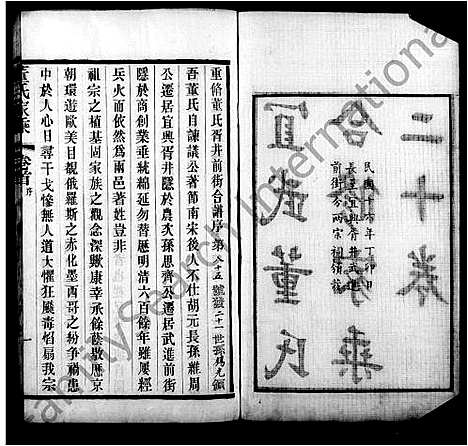 二十卷
宜武董氏
民國十六年丁卯日
前街分兩宗祖嶺
重脩董氏胥井前街合譜序
吾董氏自諫議公著節南宋後人不仕胡元長孫維周
公遷居宜興胥井隱於農次孫思齊公遷居武進前街
隱於商創業垂統綿延勿替歷明清六百餘年雖屢經
兵火而依然為兩邑著姓豈非
祖宗之植基固家族之觀念深歟康幸承餘蔭歇歷京
朝環遊歐美目覩俄羅斯之赤化墨西哥之紛爭禍患
中於人心日尋干戈慘無人道大懼狂飈毒焰扇我宗
董氏家乘
卷首
序
一
FamilySearch International